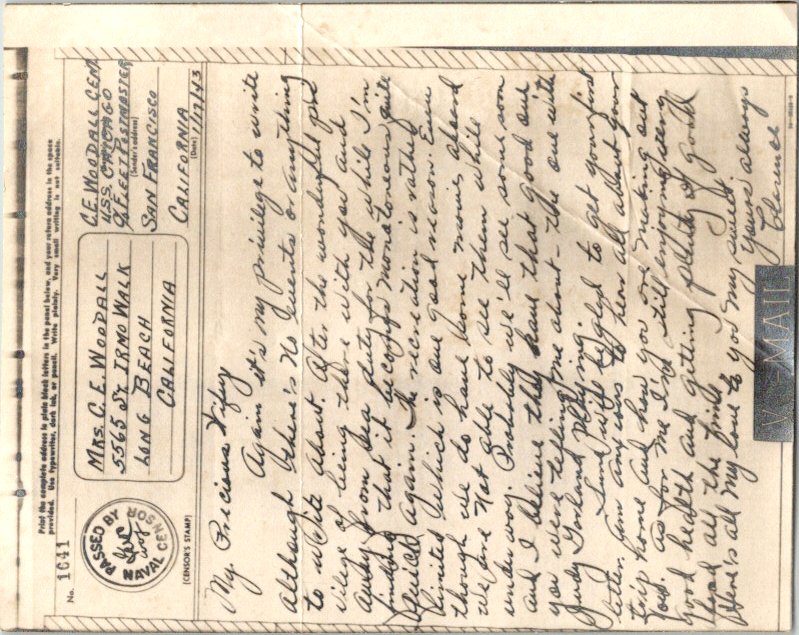 Print the complete address in plain block letters in the panel below, and your return address in the space
provided. Use typewriter, dark ink, or pencil. Write plainly. Very small writing is not suitable.
No. 1641
PASSED BY
NAVAL CENSOR
(CENSOR'S STAMP)
MRS. C. E. WOODALL
5565 St IRMO WALK
LONG BEACH
CALIFORNIA
C.E. WOODALL CEM
U.S.S. CHICAGO
% FLEET POSTMASTER
(Sender's address)
SAN FRANCISCO
CALIFORNIA
(Date) 1/17/43
My Precious Wifey
Again it's my privilege to write
although there's no events or anything
to write about. After the wonderful pri
vilege of being there with you and
away from sea duty for the while I'm
finding that it becomes monotonous quite
quick again. The recreation is rather
limited which is one good reason. Even
though we do have home movies aboard
we are not able to see them while
under way. Probably we'll see some soon
and I believe they have that good one
you were telling me about - the one with
Judy Garland playing.
Sure will be glad to get your first
letter. Am anxious to hear all about your
trip home and how you are making out
now. As for me I'm still enjoying very
good health and getting plenty of good
food all the time.
Here's all my love to you my sweet
Yours always
Clarence
V···—MAIL